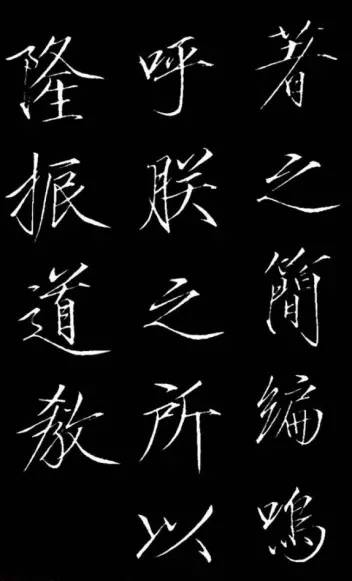 著之簡編嗚
呼朕之所以
隆振道教